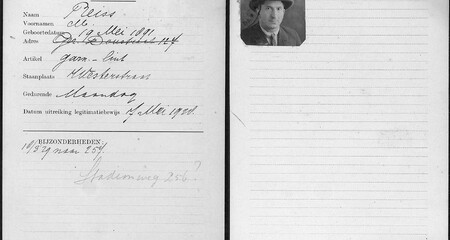 Naam Pleiss
Voornamen M.
Geboortedatum 19 Mei 1891.
Adres 127
Artikel garn - lint
Staanplaats Westerstraat
Gedurende Maandag
Datum uitreiking legitimatiebewijs 7 Mei 1928.
BIJZONDERHEDEN:
naar 257.
Stadionweg 256?